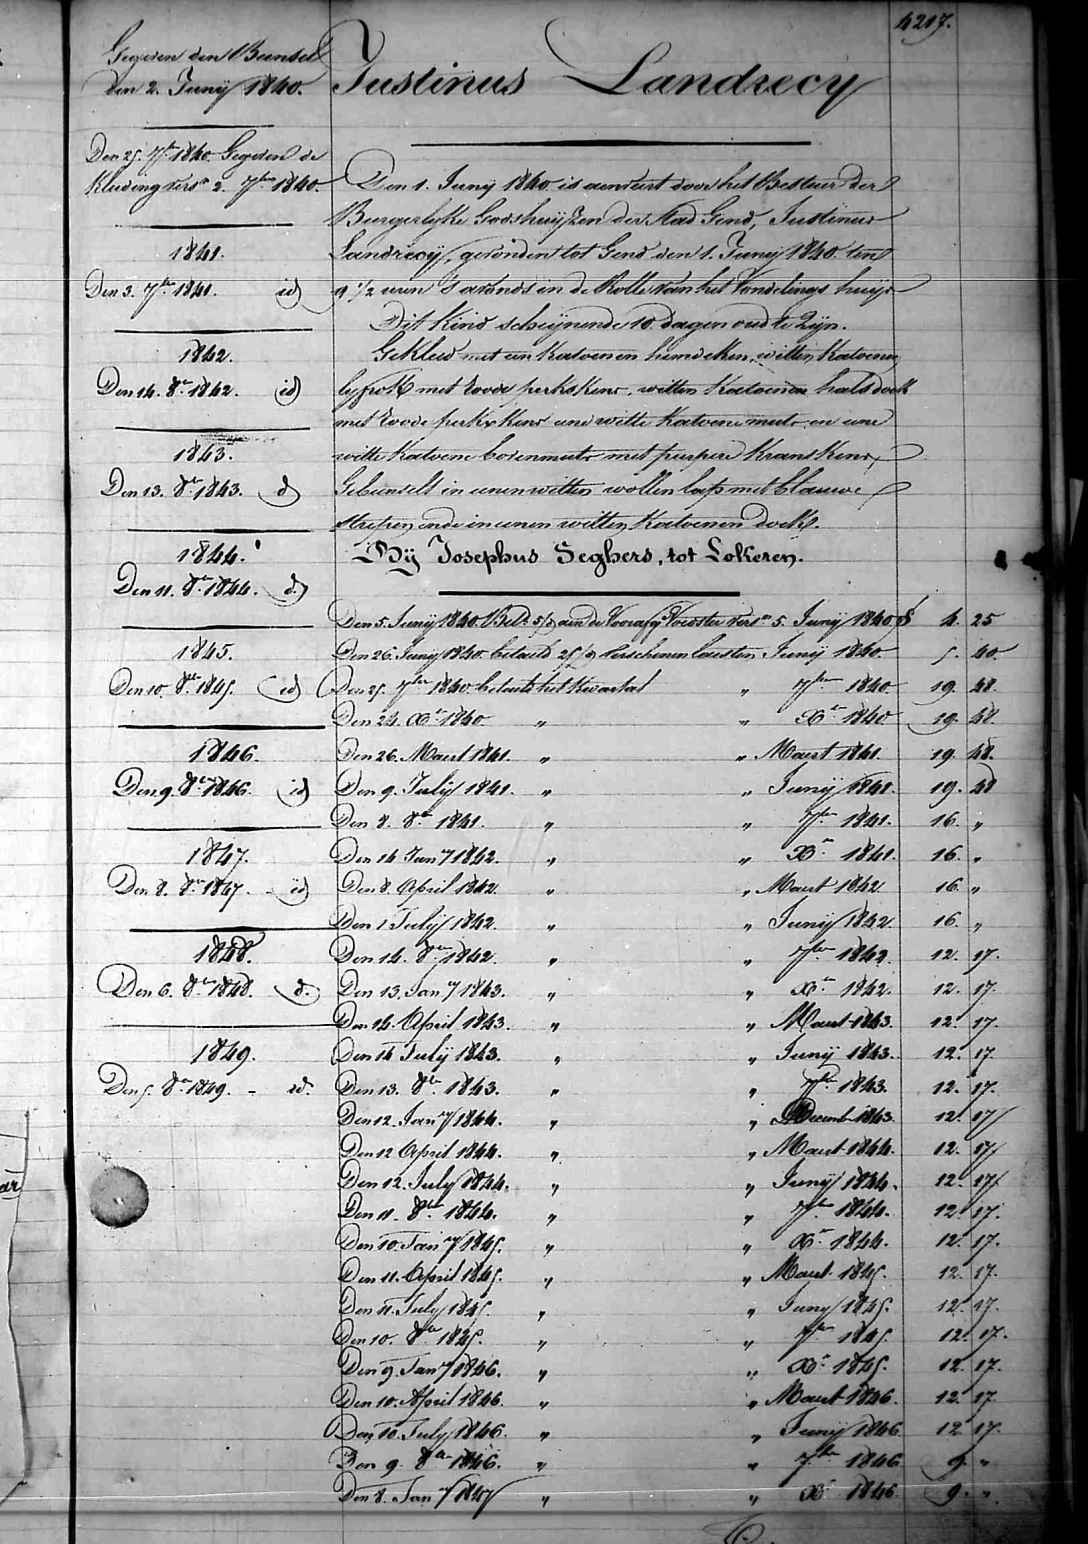 4217.
Gegeven den Bunsel
den 2. Junij 1840.
Justinus Landrecy
Den 25. 7br 1840. Gegeven de
Kleeding vers. 2. 7ber 1840.
1841.
Den 3. 7ber 1841. id
1842.
Den 14. 8br 1842. id
1843.
Den 13. 8br 1843. d
1844.
Den 11. 8br 1844. d.
1845.
Den 10. 8br 1845. id
1846.
Den 9. 8br 1846. id
1847.
Den 8. 8br 1847. - id
1848.
Den 6. 8br 1848. d.
1849.
Den 5. 8br 1849. - id.
Den 1. Junij 1840 is aenveert door het Bestuer der
Burgerlyke Godshuijzen der stad Gend, Justinus
Landrecij, gevonden tot Gend den 1. Junij 1840. ten
9 1/2 uren 's avonds in de Rolle van het Vondelings huijs
Dit Kind schijnende 10 dagen oud te Zijn.
Gekleed met een Katoenen hemdeken, witten Katoenen
lyfrok met roode perkskens, witten Katoenen halsdoek
met roode perkskens eene witte Katoene muts en eene
witte Katoene bovenmuts met purpere Kranskens,
Gebunselt in eenen witten wollen lap met blauwe
streepen ende in eenen witten Katoenen doek.
Bij Josephus Seghers, tot Lokeren.
Den 5. Junij 1840. Bet. 5/ aen de Voorafg. Voedster vers. 5. Junij 1840 f 4. 25
Den 26. Junij 1840. betaeld 25/ verschenen laesten Junij 1840. 5. 40.
Den 25. 7ber 1840. betaeld het Kwartael " 7ber 1840. 19. 48.
Den 24. Xr 1840. " " Xr 1840 19. 48.
Den 26. Maert 1841. " " Maert 1841. 19. 48.
Den 9. Julij 1841. " " Junij 1841. 19. 48
Den 8. 8br 1841. " " 7ber 1841. 16. "
Den 14 Jany 1842. " " Xr 1841. 16. "
Den 8. April 1842. " " Maert 1842. 16. "
Den 1. Julij 1842. " " Junij 1842 16. "
Den 14. 8br 1842. " " 7ber 1842. 12. 17.
Den 13. Jany 1843. " " Xr 1842. 12. 17.
Den 14. April 1843. " " Maert 1843. 12. 17.
Den 14 Julij 1843. " " Junij 1843. 12. 17
Den 13. 8br 1843. " " 7ber 1843. 12. 17.
Den 12. Jany 1844. " " Decemb 1843. 12. 17
Den 12 April 1844. " " Maert 1844. 12. 17
Den 12. July 1844. " " Junij 1844. 12. 17
Den 11. 8br 1844. " " 7ber 1844. 12. 17.
Den 10. Jany 1845. " " Xr 1844. 12. 17.
Den 11. April 1845. " " Maert 1845. 12. 17.
Den 11. July 1845. " " Juny 1845. 12. 17.
Den 10. 8br 1845. " " 7ber 1845. 12. 17.
Den 9. Jany 1846. " " Xr 1845. 12. 17.
Den 10. April 1846. " " Maert 1846. 12. 17.
Den 10. July 1846. " " Junij 1846. 12. 17.
Den 9. 8br 1846. " " 7ber 1846 9. "
Den 8. Jany 1847 " " Xr 1846. 9. "